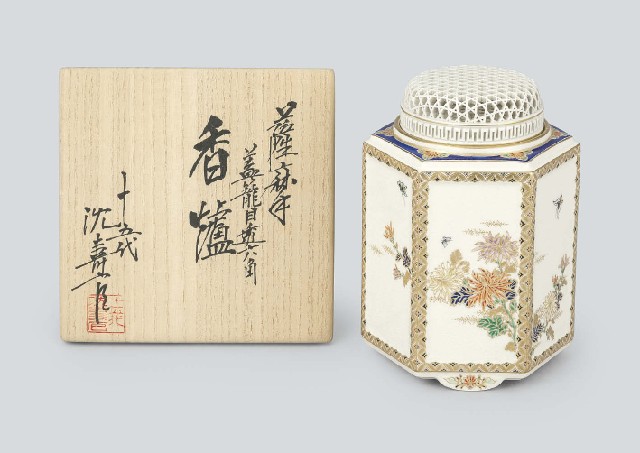 薩摩手
蓋籠目透六角
香爐
十五代
沈壽官